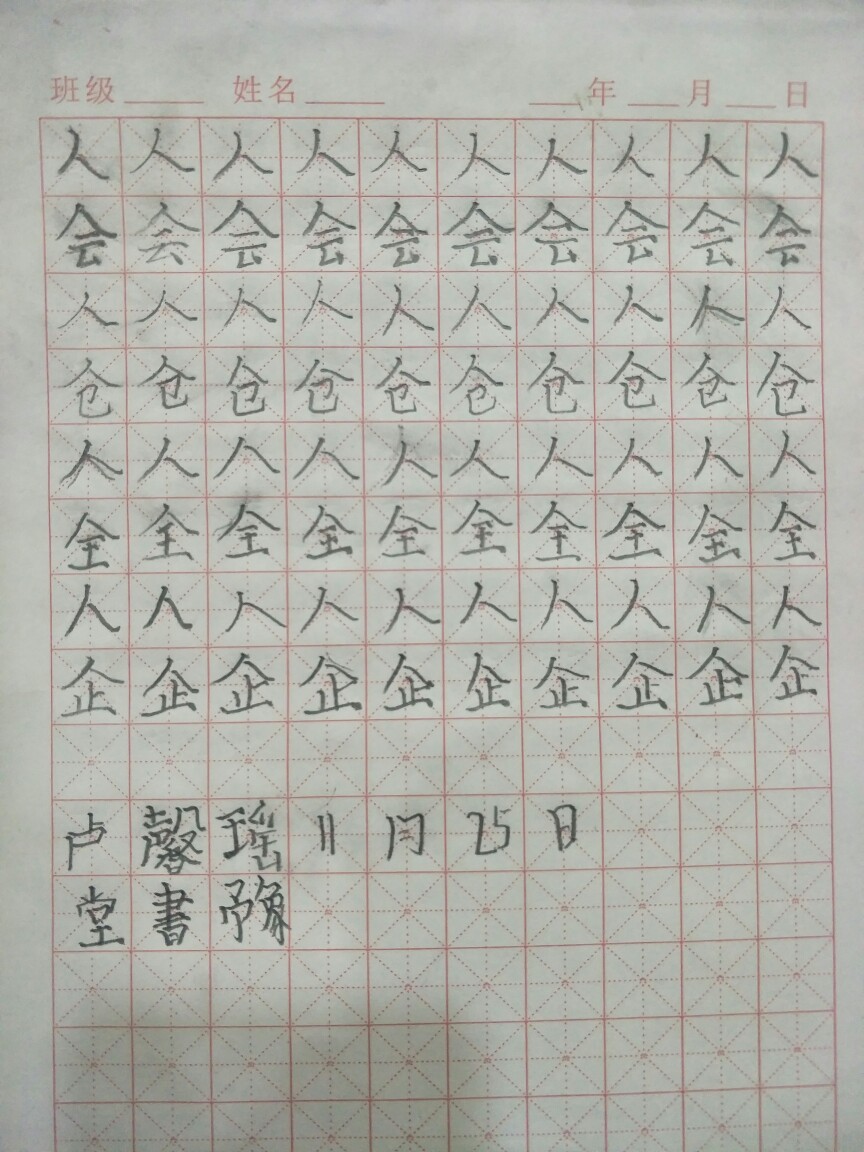 班级 姓名 年 月 日
人人人人人人人人人人
会会会会会会会会会会
人人人人人人人人人人
仓仓仓仓仓仓仓仓仓仓
人人人人人人人人人人
全全全全全全全全全全
人人人人人人人人人人
企企企企企企企企企企
卢馨瑶11月25日
堂書豫